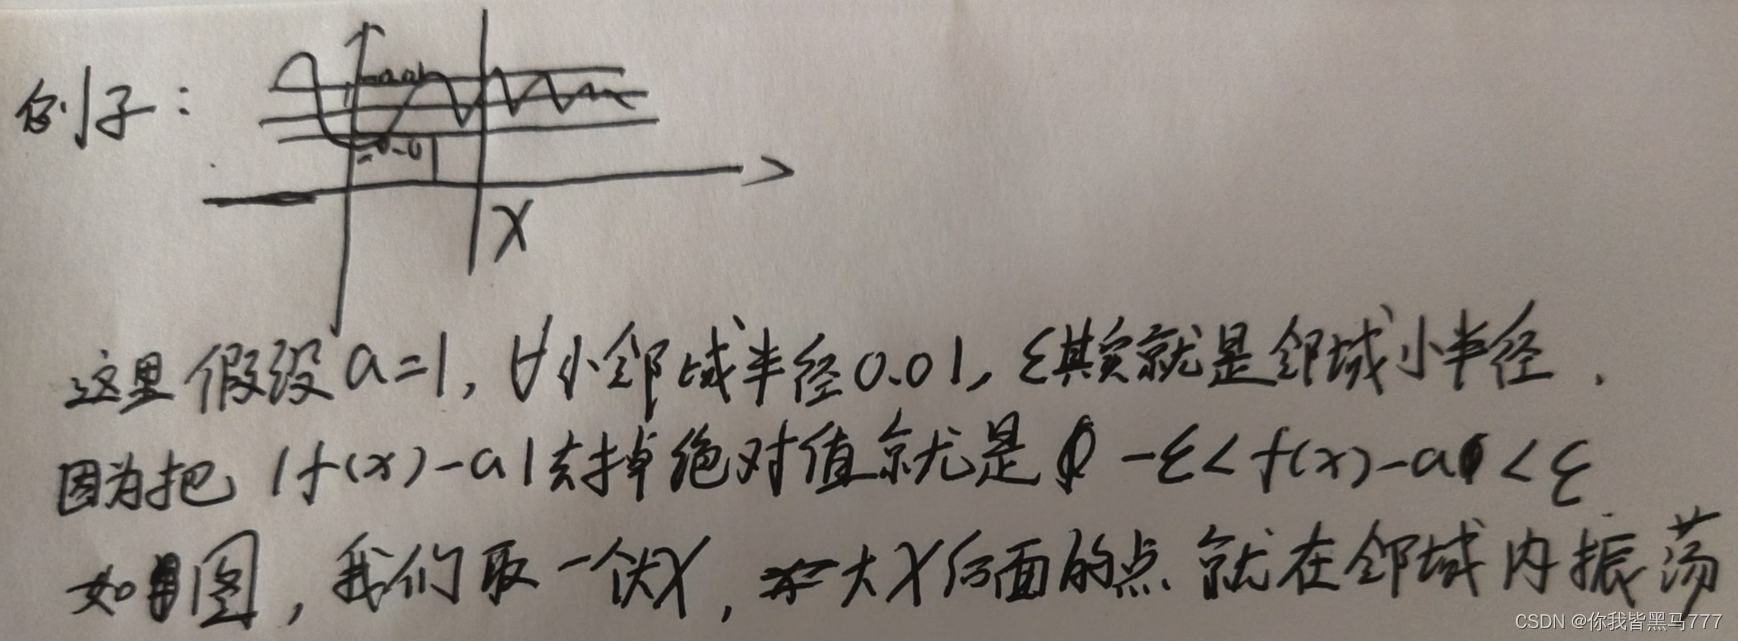 例子:
0.01
-0.01
X
这里假设a=1,∀小邻域半径0.01,ε其实就是邻域小半径.
因为把|f(x)-a|去掉绝对值就是 -ε<f(x)-a<ε
如图,我们取一个大X,大X后面的点就在邻域内振荡
CSDN @你我皆黑马777